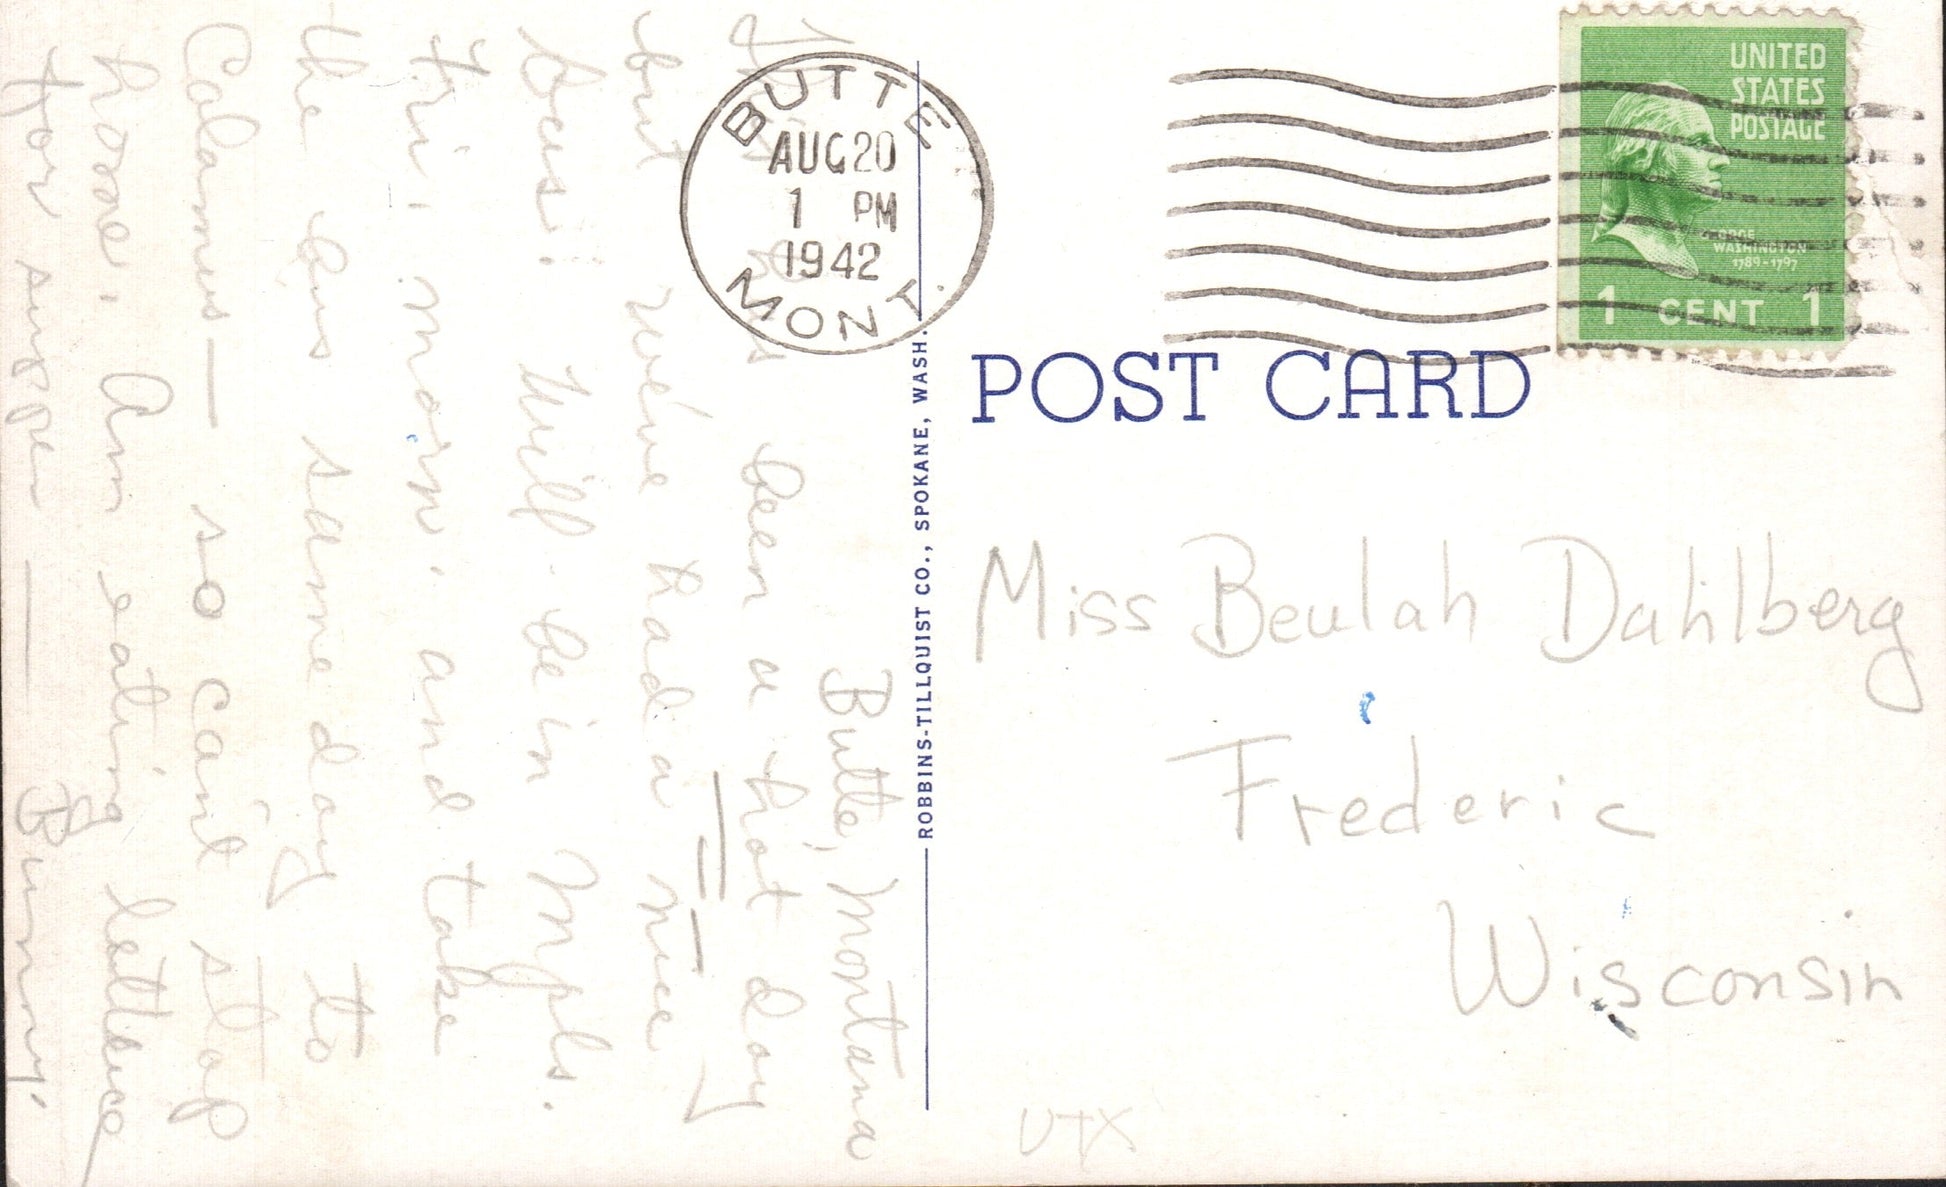 BUTTE
AUG 20
1 PM
1942
MONT.
UNITED
STATES
POSTAGE
GEORGE
WASHINGTON
1789-1797
1 CENT 1
POST CARD
ROBBINS-TILLQUIST CO., SPOKANE, WASH.
Miss Beulah Dahlberg
Frederic
Wisconsin
UTX
Butte, Montana
This has been a hot day
but we've had a nice
bus. Will be in Mpls.
Fri. morn. and take
the bus same day to
Calamus — so can't stop
Am eating lettuce
for supper — Bunny.